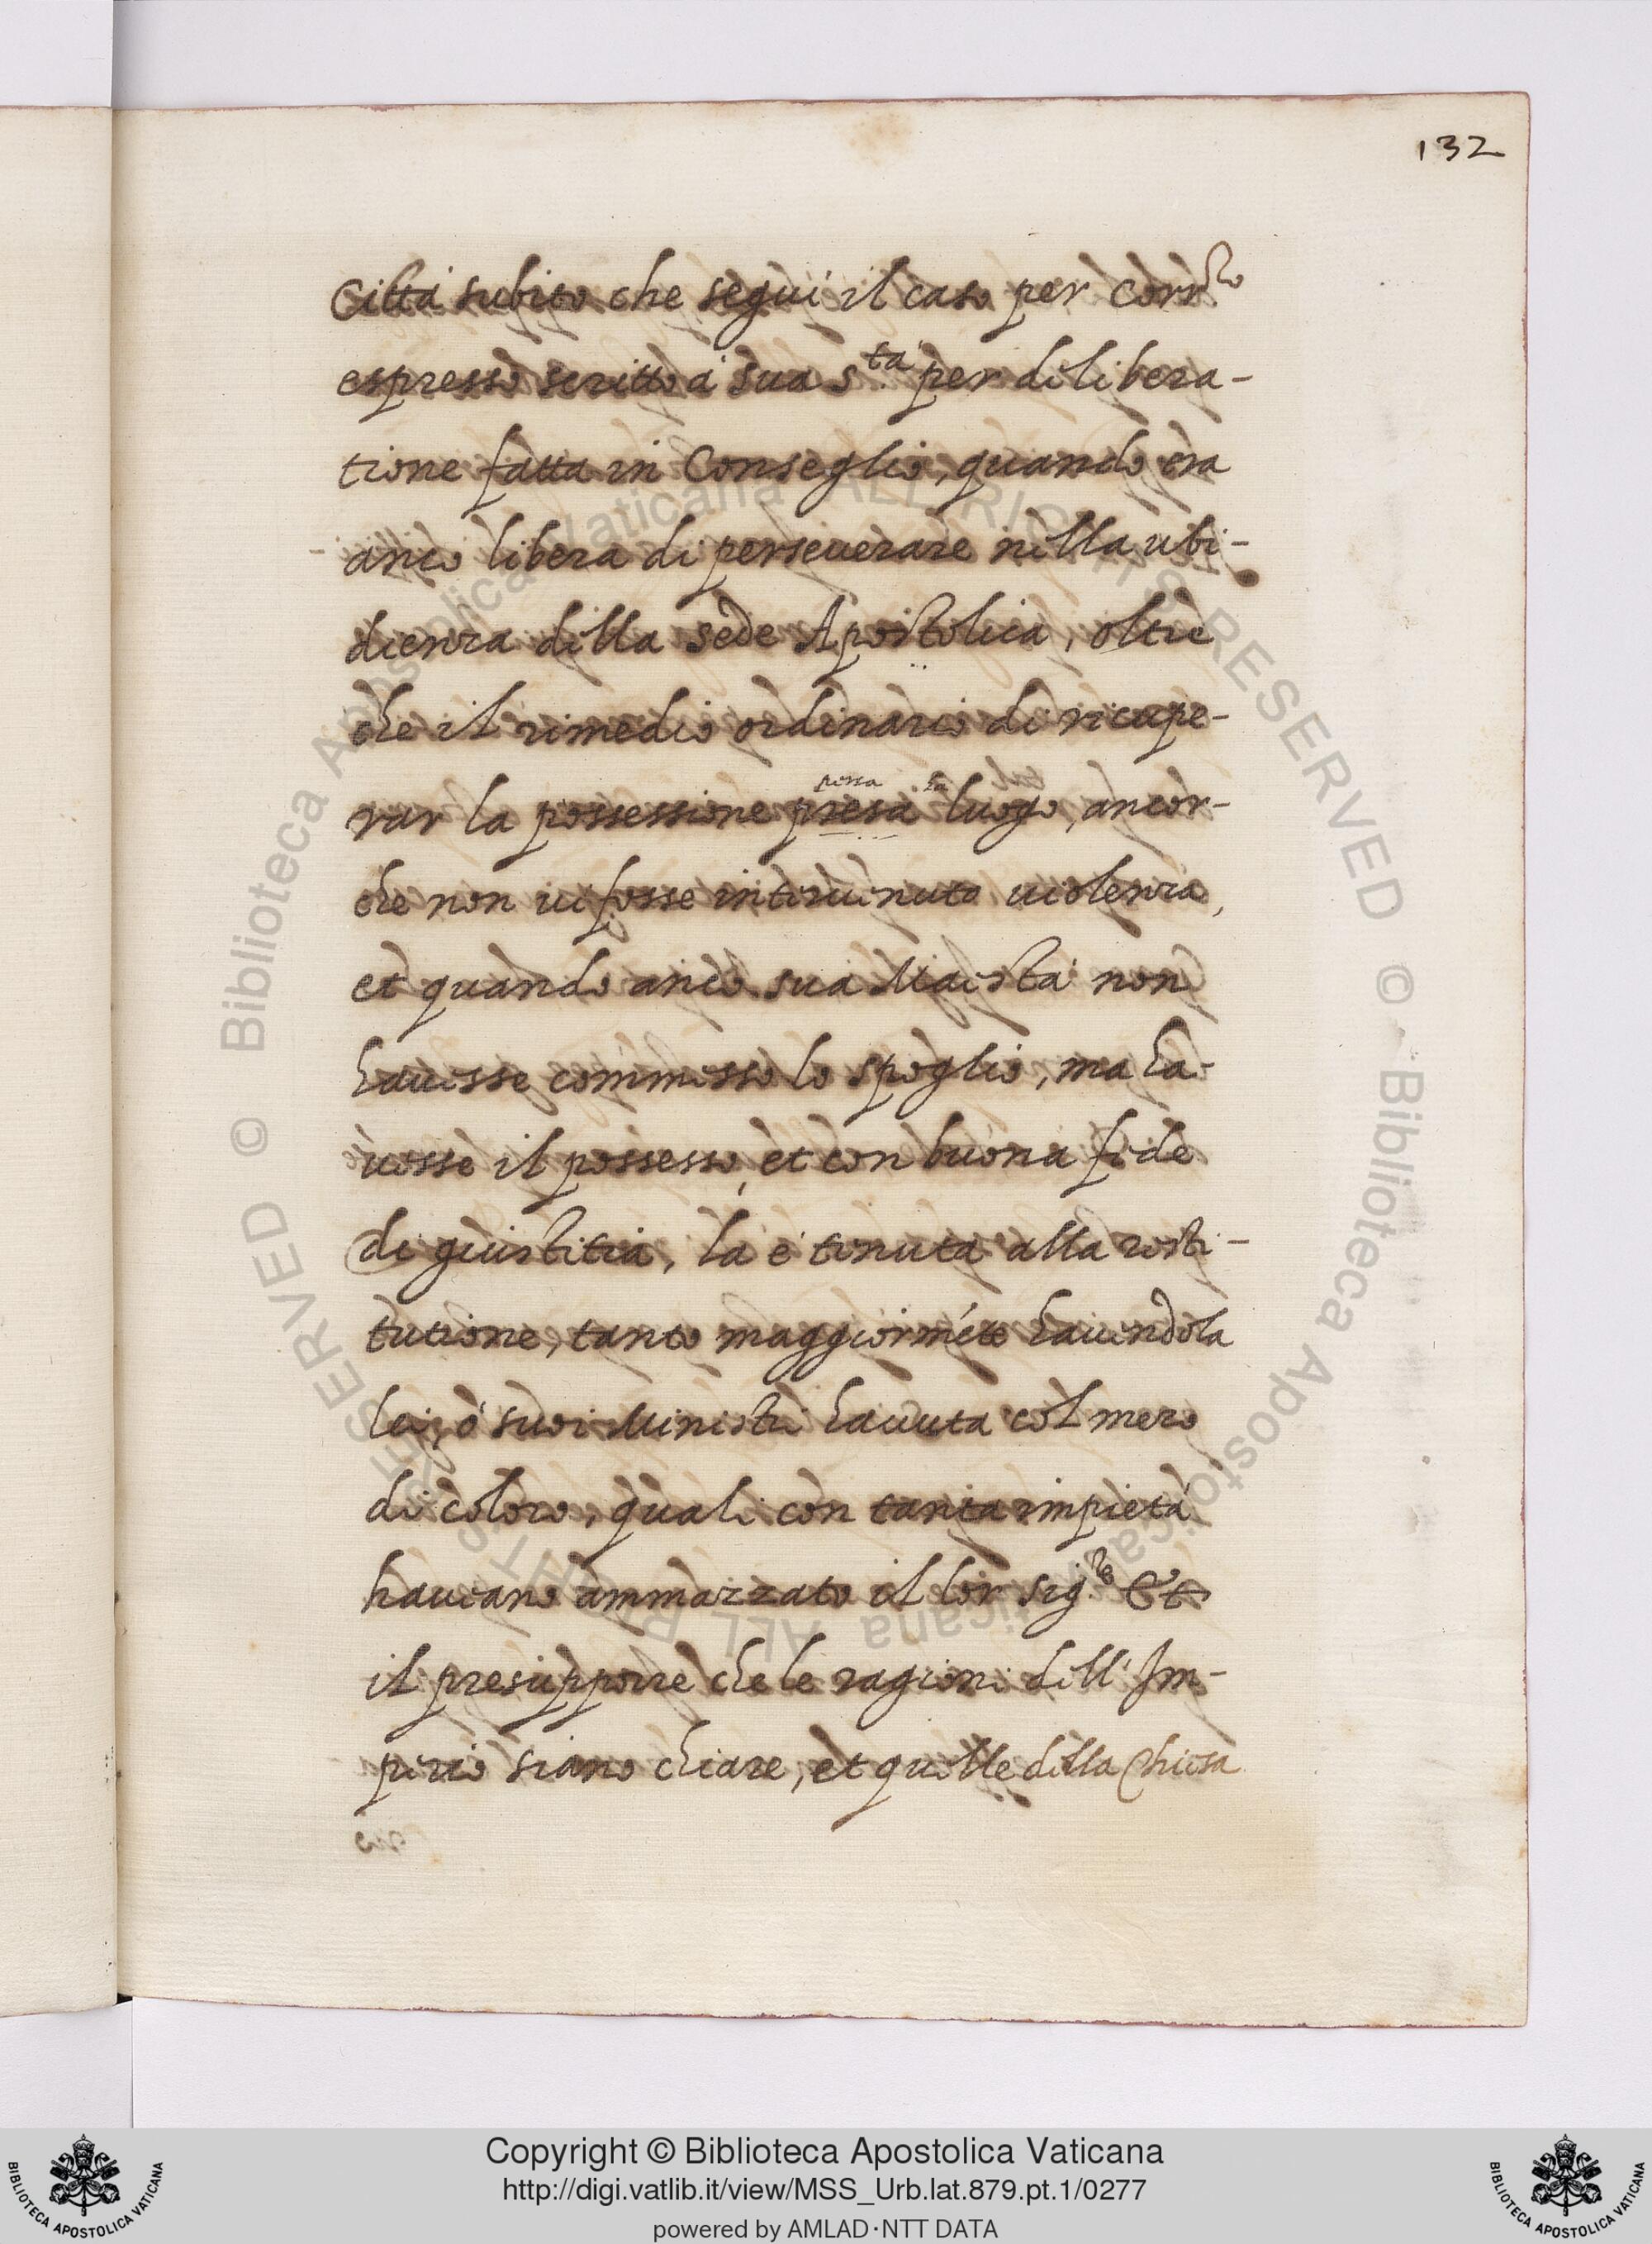 132
Città subito che segui il caso per corr.re
espresso scritto à sua S.tà per delibera-
tione fatta in Conseglio, quando era
anco libera di perseuerare nella ubi-
dienza della sede Apostolica, oltre
che il rimedio ordinario di ricupe-
rar la possessione presa luogo, ancor-
che non ui fosse interuenuto uiolenza,
et quando anco sua Maestà non
hauesse commesso lo spoglio, ma ha-
uesse il possesso, et con buona fede
de giustitia, la è tenuta alla resti-
tutione, tanto maggiormẽte hauendola
lei, ò suoi Ministri hauuta col mezo
di coloro, quali con tanta impietà
haueano ammazzato il lor sig.re Et
il presupporre che le ragioni dell' Im-
perio siano chiare, et quelle della Chiesa
Copyright © Biblioteca Apostolica Vaticana
http://digi.vatlib.it/view/MSS_Urb.lat.879.pt.1/0277
powered by AMLAD·NTT DATA
BIBLIOTECA APOSTOLICA VATICANA
BIBLIOTECA APOSTOLICA VATICANA
© Biblioteca Apostolica Vaticana ALL RIGHTS RESERVED
© Biblioteca Apostolica Vaticana ALL RIGHTS RESERVED